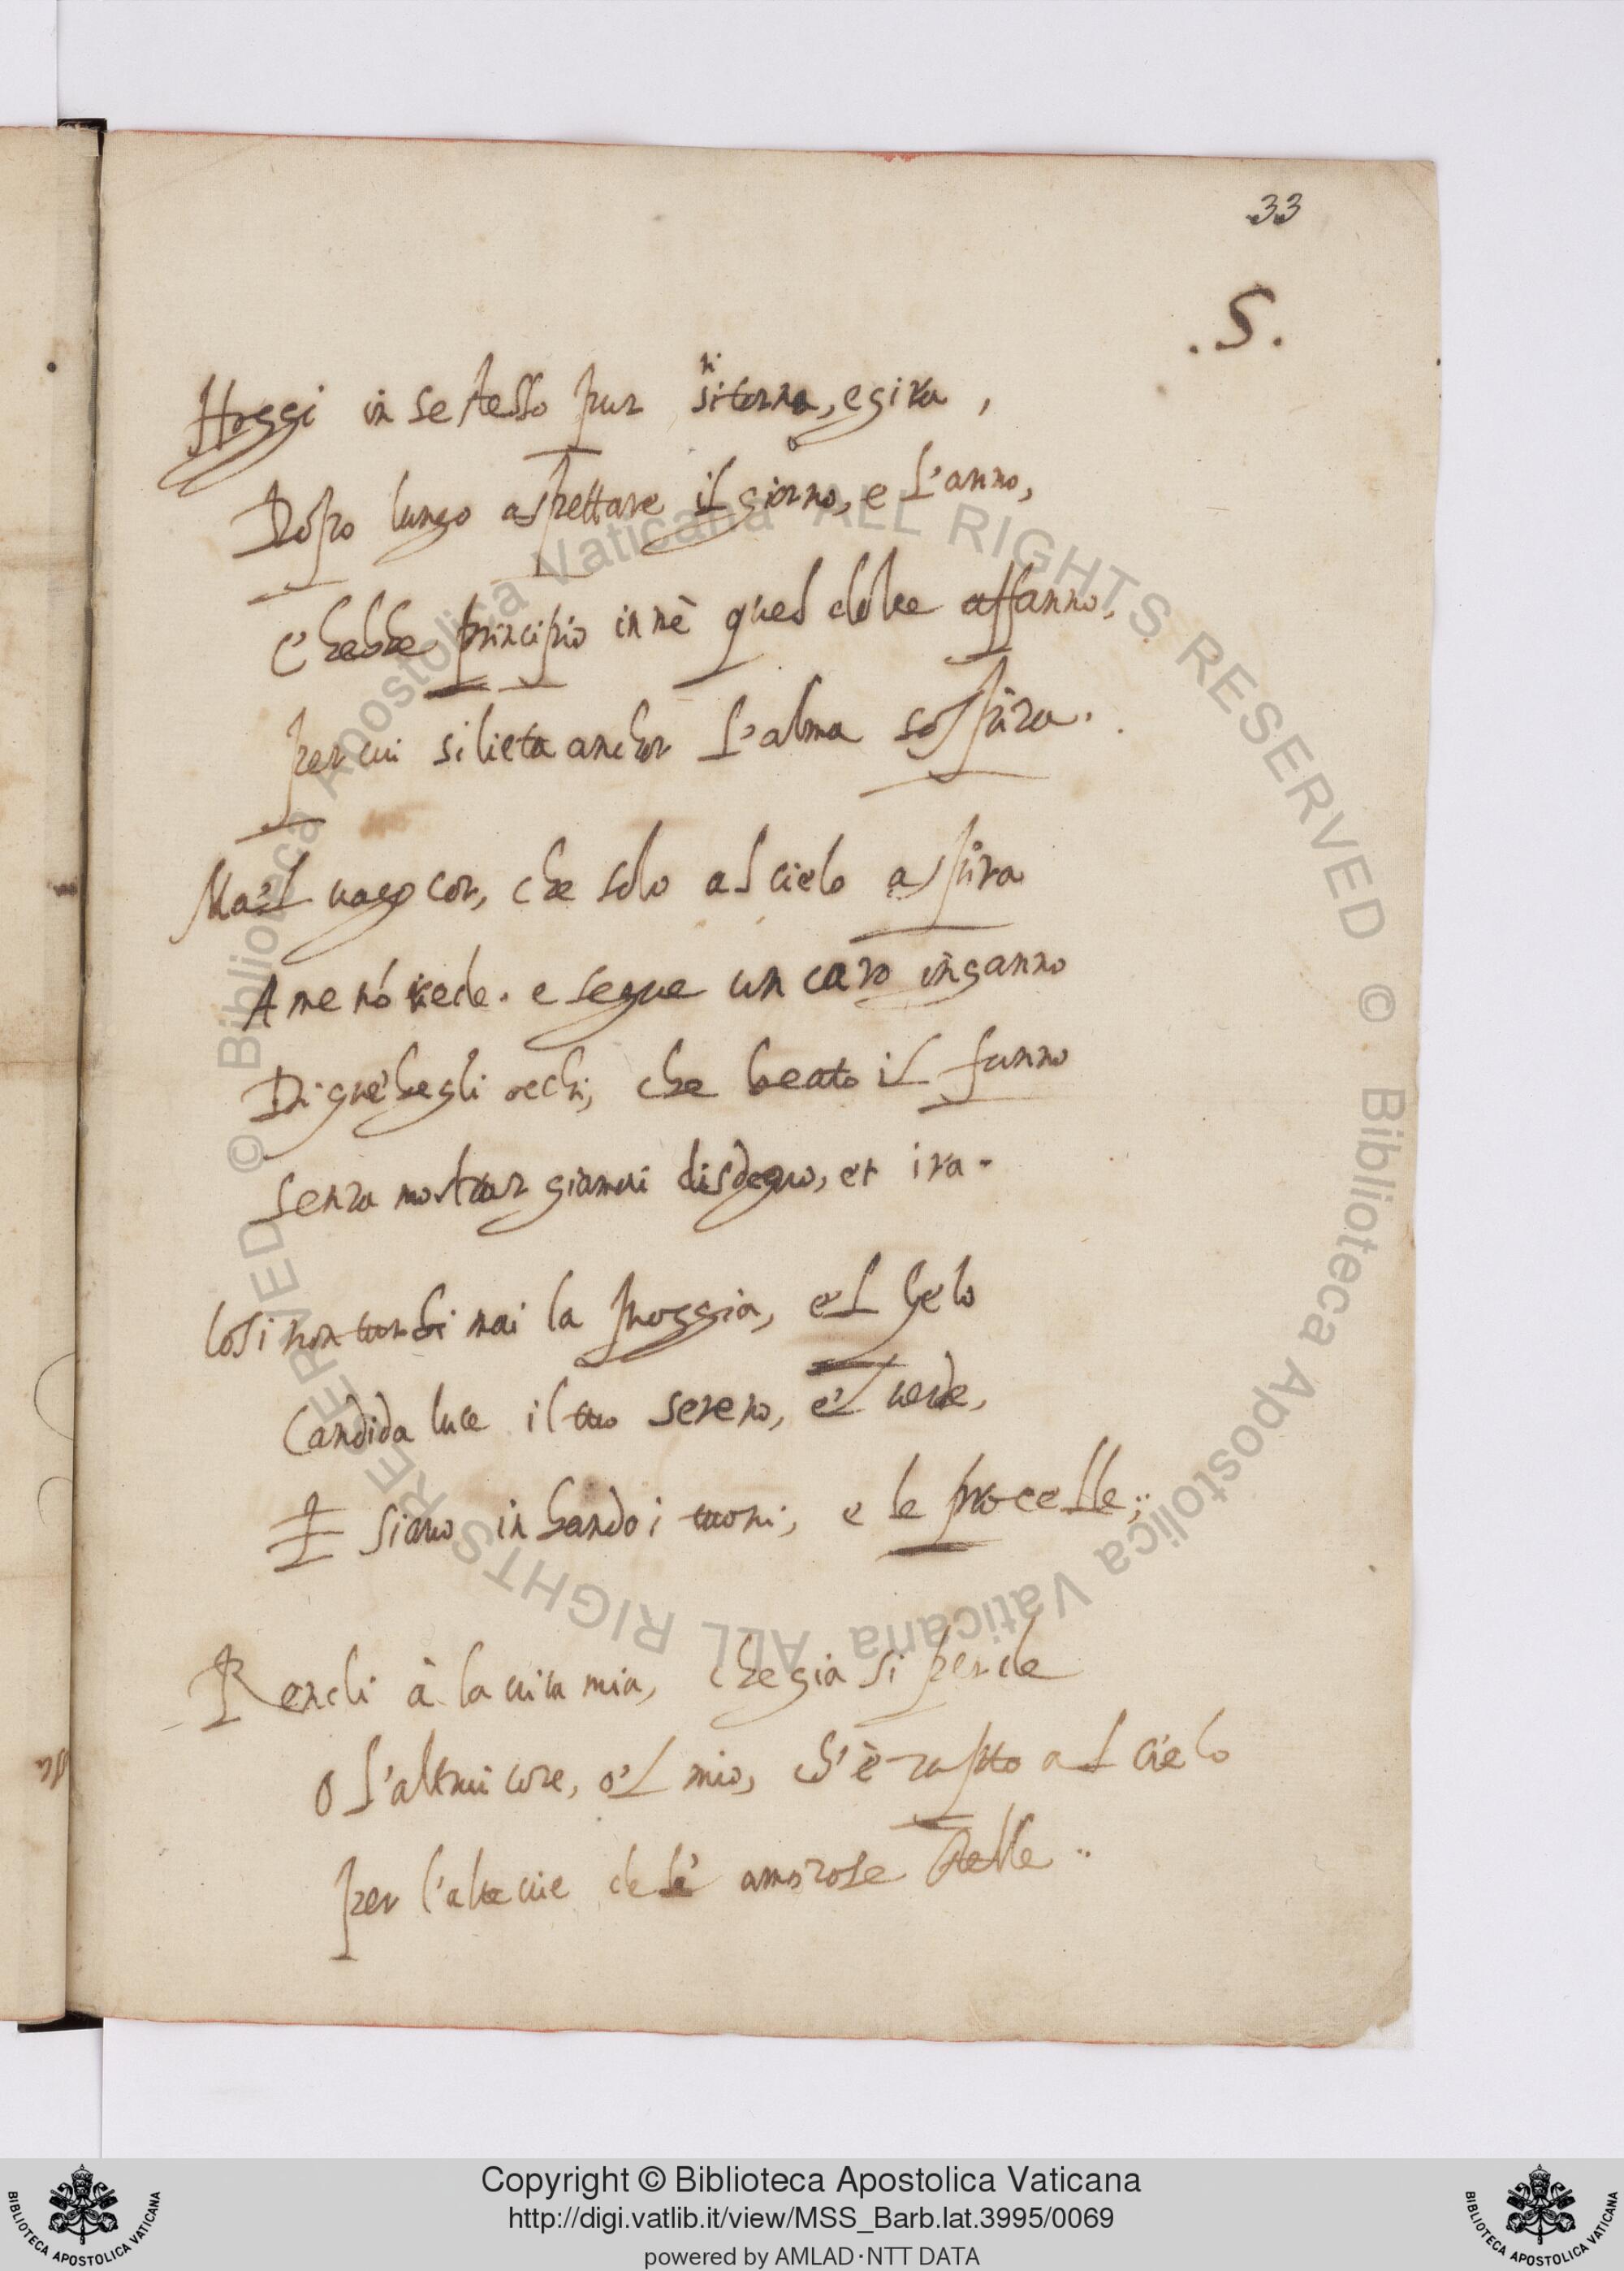 33
.S.
Hoggi in se stesso pur ritorna, e gira,
Dopo lungo aspettare il giorno, e l'anno,
C'hebbe principio in me quel dolce affanno,
per cui si lieta anchor l'alma sospira.
Ma'l vago cor, che solo al cielo aspira
A me nó riede. e segue un caro inganno
Di que' begli occhi, che beato il fanno
senza mostrar giamai disdegno, et ira.
Cosi non turbi mai la pioggia, e'l gelo
Candida luce il tuo sereno, e'l verde,
E siano in bando i tuoni, e le procelle;
Rendi à la vita mia, che gia si perde
O l'altrui core, o'l mio, ch'è rapito al cielo
per l'alte vie de le amorose stelle..
Copyright © Biblioteca Apostolica Vaticana
http://digi.vatlib.it/view/MSS_Barb.lat.3995/0069
powered by AMLAD·NTT DATA
BIBLIOTECA APOSTOLICA VATICANA
BIBLIOTECA APOSTOLICA VATICANA
© Biblioteca Apostolica Vaticana ALL RIGHTS RESERVED
© Biblioteca Apostolica Vaticana ALL RIGHTS RESERVED